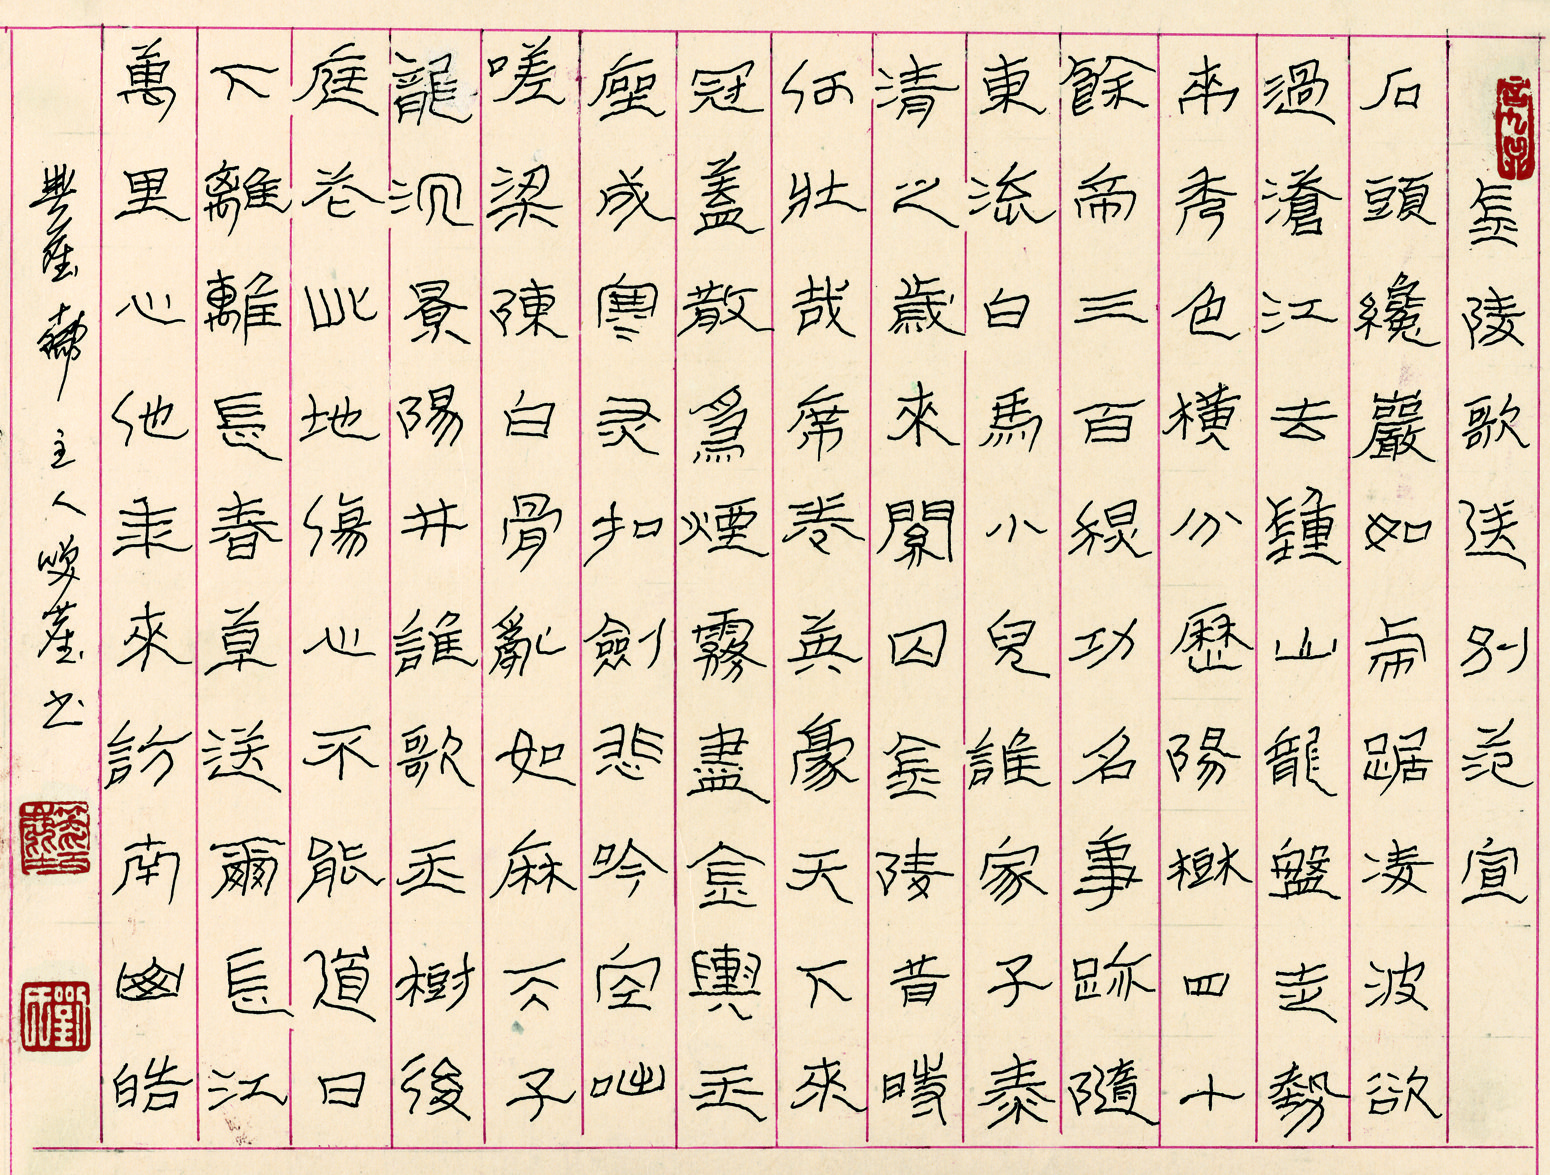 金陵歌送别范宣
石頭纔巖如虎踞凌波欲
過滄江去鍾山龍盤走勢
來秀色橫分歷陽樹四十
餘帝三百功名事跡隨
東流白馬小兒誰家子泰
清之歲來關囚金陵昔時
何壯哉席卷英豪天下來
冠蓋散為煙霧盡金輿玉
座成寒灰扣劍悲吟空咄
嗟梁陳白骨亂如麻天子
龍沉景陽井誰歌玉樹後
庭花此地傷心不能道日
下離離長春草送爾長江
萬里心他年來訪南幽皓
主人書